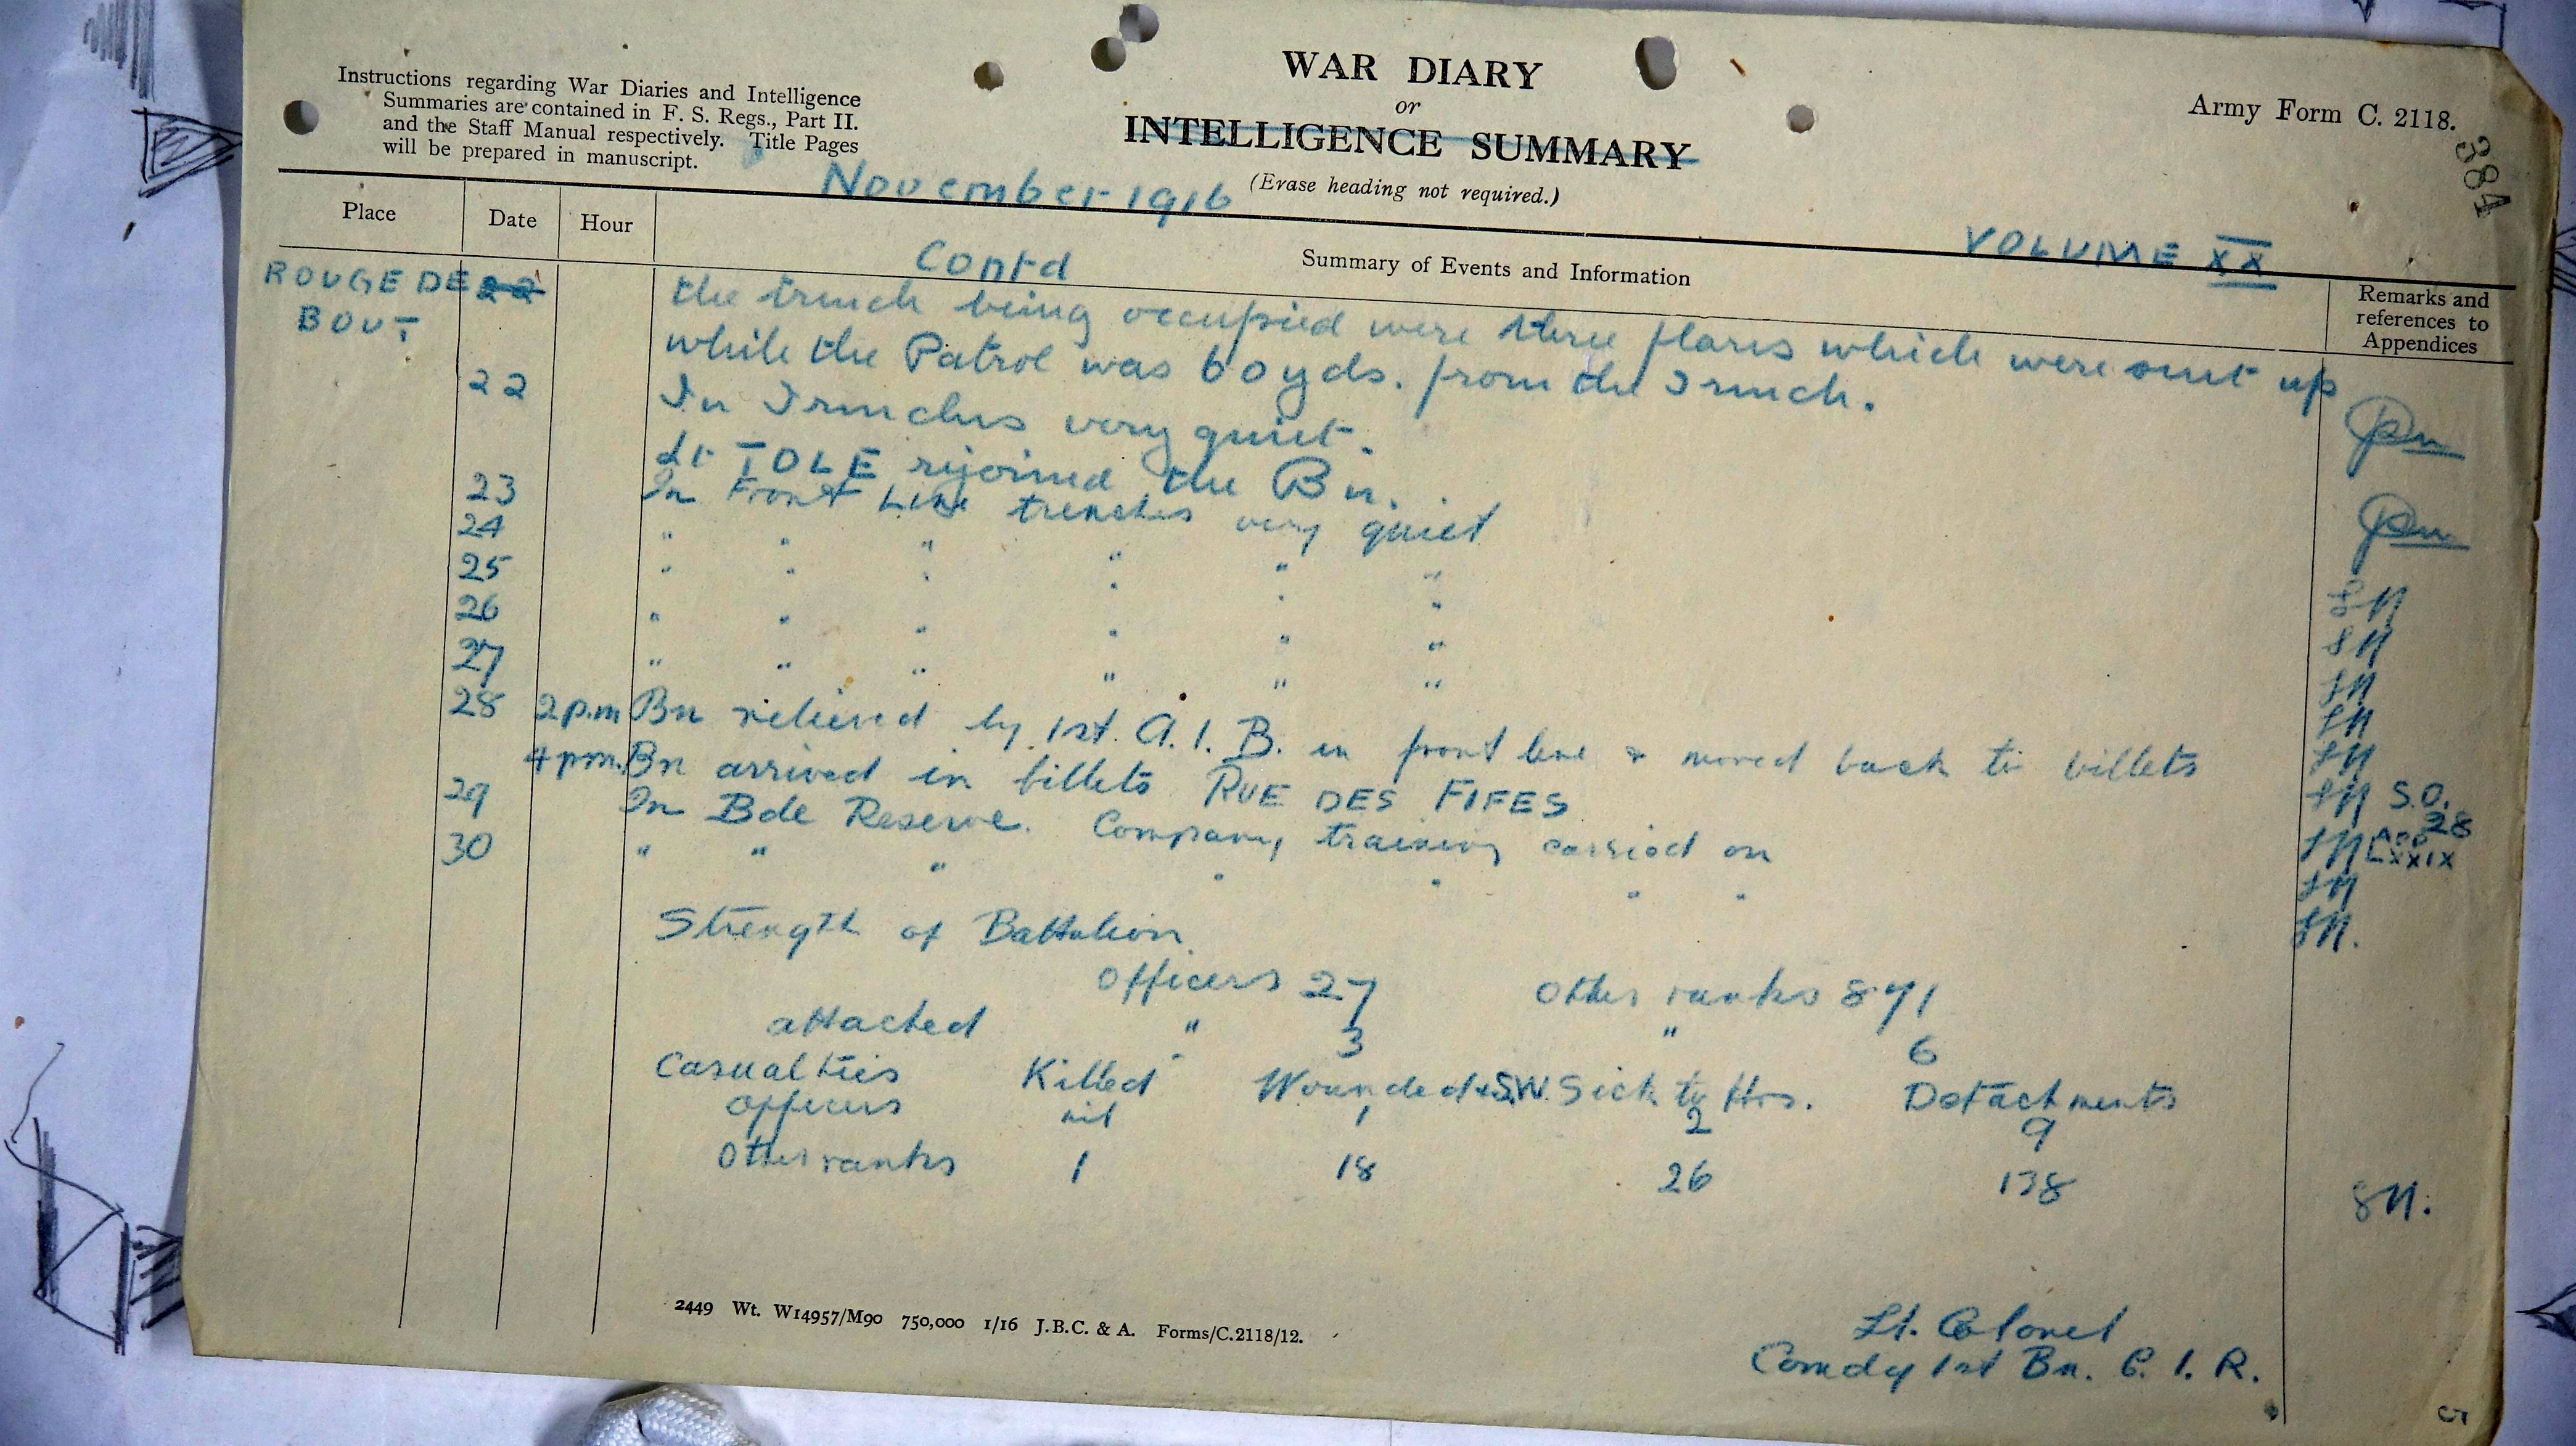 Instructions regarding War Diaries and Intelligence
Summaries are contained in F. S. Regs., Part II.
and the Staff Manual respectively. Title Pages
will be prepared in manuscript.
WAR DIARY
or
INTELLIGENCE SUMMARY
(Erase heading not required.)
Army Form C. 2118.
384
November 1916
VOLUME XX
Place Date Hour Summary of Events and Information Remarks and references to Appendices
Contd
ROUGE DE BOUT 22 the trench being occupied were three flares which were sent up
while the Patrol was 60 yds. from the Trench.
22 In Trenches very quiet.
Lt IDLE rejoined the Bn.
23 In Front Line trenches very quiet
24 " " " " " "
25 " " " " " "
26 " " " " " "
27 " " " " " "
28 2 p.m Bn relieved by 1st. A. I. B. in front line & moved back to billets
4 pm. Bn arrived in billets RUE DES FIFES S.O. 28
29 In Bde Reserve. Company training carried on App LXXIX
30 " " " " " " "
Strength of Battalion
Officers 27 Other ranks 871
attached " 3 " 6
Casualties Killed Wounded & S.W. Sick to Hos. Detachments
Officers nil 1 2 9
Other ranks 1 18 26 138
2449 Wt. W14957/M90 750,000 1/16 J.B.C. & A. Forms/C.2118/12.
Lt. Colonel
Comdg 1st Bn. C. I. R.
5